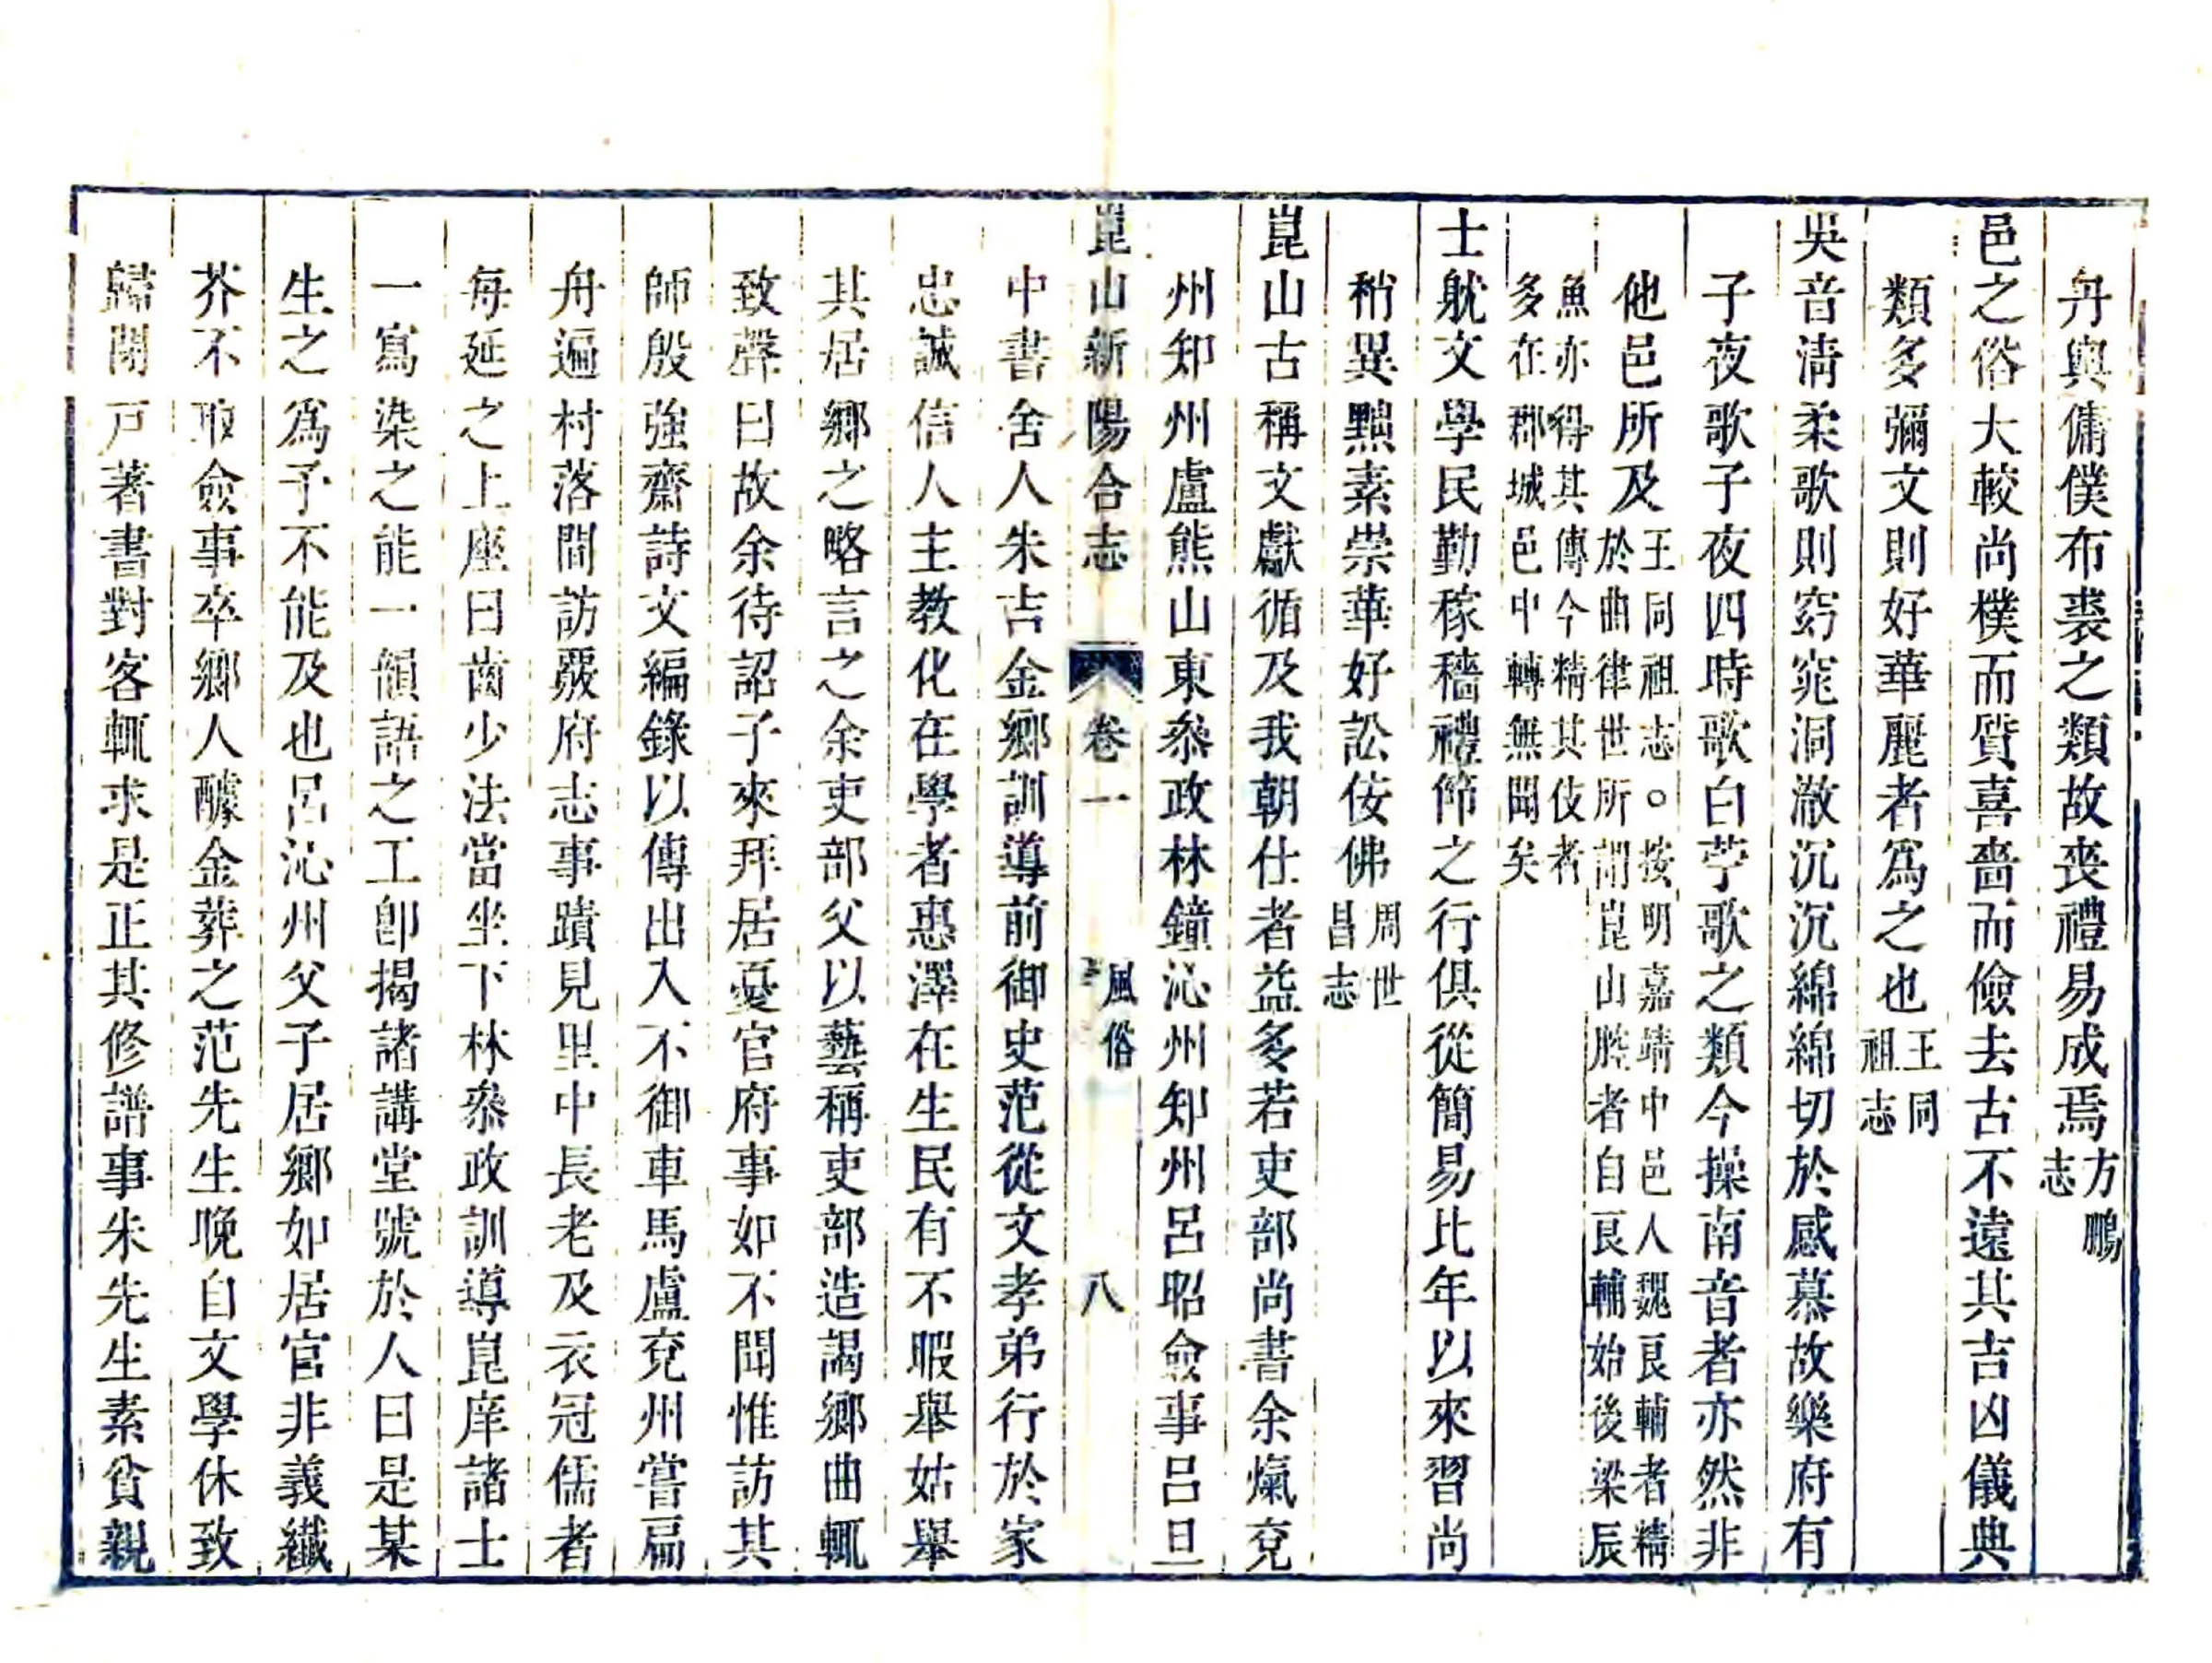 丹輿傭僕布裘之類故喪禮易成焉方鵬志
邑之俗大較尚樸而質喜嗇而儉去古不遠其吉凶儀典
類多彌文則好華麗者爲之也王同祖志
吳音清柔歌則窈窕洞澈沉沉綿綿切於感慕故樂府有
子夜歌子夜四時歌白苧歌之類今操南音者亦然非
他邑所及王同祖志○按明嘉靖中邑人魏良輔者精
於曲律世所謂崑山腔者自良輔始後梁辰
魚亦得其傳今精其伎者
多在郡城邑中轉無聞矣
士躭文學民勤稼穡禮節之行俱從簡易比年以來習尚
稍異黜素崇華好訟佞佛周世昌志
崑山古稱文獻循及我朝仕者益多若吏部尚書余熂兗
州知州盧熊山東叅政林鐘沁州知州呂昭僉事呂旦
崑山新陽合志 卷一 風俗 八
中書舍人朱吉金鄉訓導前御史范從文孝弟行於家
忠誠信人主教化在學者惠澤在生民有不暇舉姑舉
其居鄉之略言之余吏部父以藝稱吏部造謁鄉曲輒
致聲曰故余待詔子來拜居憂官府事如不聞惟訪其
師殷強齋詩文編錄以傳出入不御車馬盧兗州嘗扁
舟遍村落間訪覈府志事蹟見里中長老及衣冠儒者
每延之上座曰齒少法當坐下林叅政訓導崑庠諸士
一寫染之能一韻語之工卽揭諸講堂號於人曰是某
生之爲予不能及也呂沁州父子居鄉如居官非義纖
芥不取僉事卒鄉人醵金葬之范先生晚自文學休致
歸閉戸著書對客輒求是正其修譜事朱先生素貧親